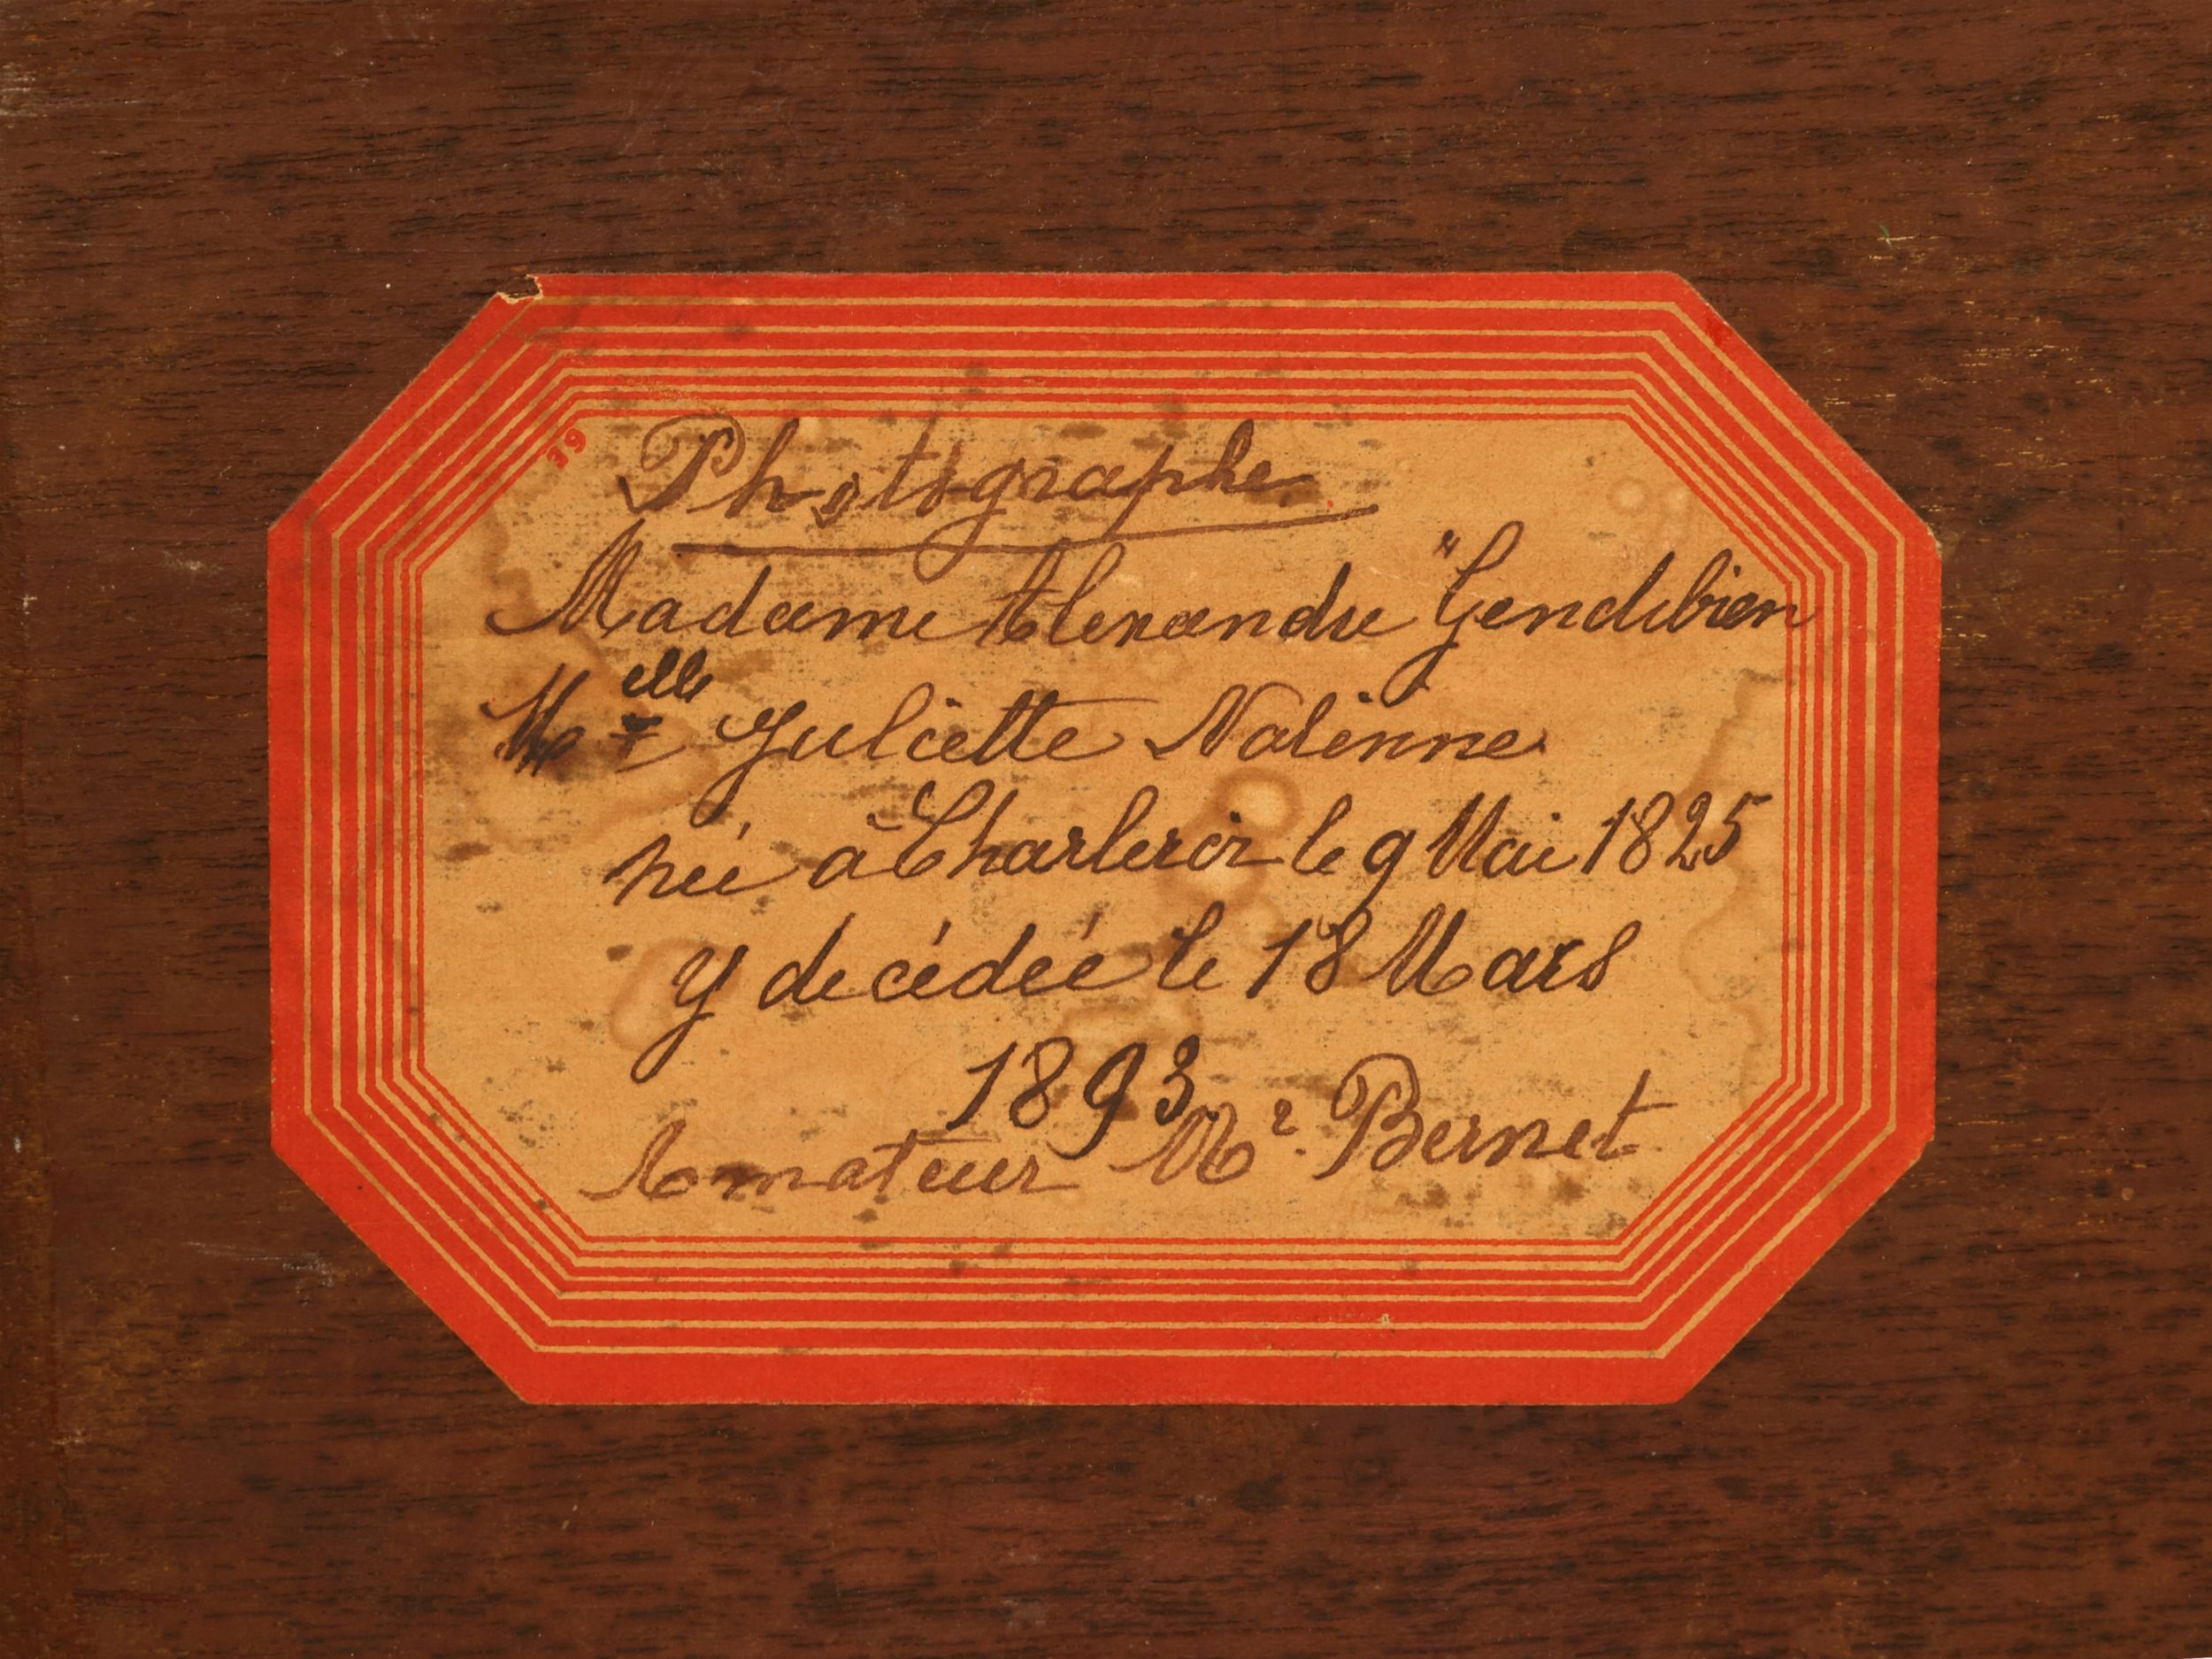 19
Photographe
Madame Alexandre "Gendebien
Melle Juliette Nalinne
née à Charleroi le 9 Mai 1825
y decédée le 18 Mars
1893
Amateur Mr. Bernet